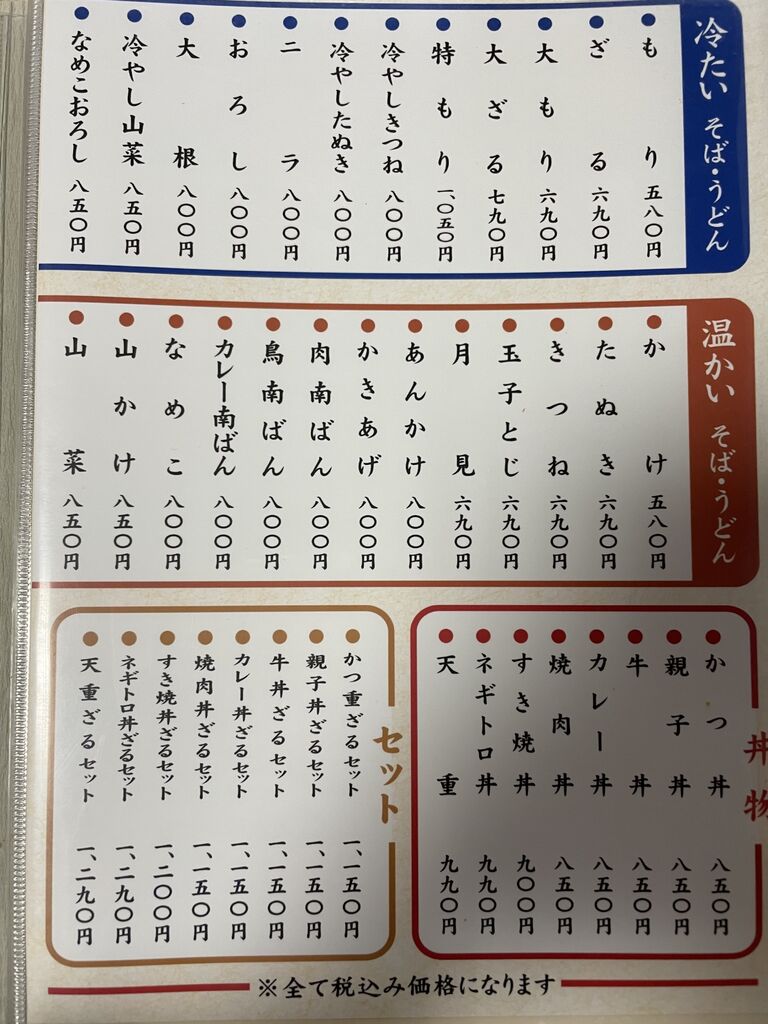 冷たい そば・うどん
もり 五八〇円
ざる 六九〇円
大もり 六九〇円
大ざる 七九〇円
特もり 一、〇五〇円
冷やしきつね 八〇〇円
冷やしたぬき 八〇〇円
ニラ 八〇〇円
おろし 八〇〇円
大根 八〇〇円
冷やし山菜 八五〇円
なめこおろし 八五〇円
温かい そば・うどん
かけ 五八〇円
たぬき 六九〇円
きつね 六九〇円
玉子とじ 六九〇円
月見 六九〇円
あんかけ 八〇〇円
かきあげ 八〇〇円
肉南ばん 八〇〇円
鳥南ばん 八〇〇円
カレー南ばん 八〇〇円
なめこ 八〇〇円
山かけ 八五〇円
山菜 八五〇円
丼物
かつ丼 八五〇円
親子丼 八五〇円
牛丼 八五〇円
カレー丼 八五〇円
焼肉丼 八五〇円
すき焼丼 九〇〇円
ネギトロ丼 九九〇円
天重 九九〇円
セット
かつ重ざるセット 一、一五〇円
親子丼ざるセット 一、一五〇円
牛丼ざるセット 一、一五〇円
カレー丼ざるセット 一、一五〇円
焼肉丼ざるセット 一、一五〇円
すき焼丼ざるセット 一、二〇〇円
ネギトロ丼ざるセット 一、二九〇円
天重ざるセット 一、二九〇円
※全て税込み価格になります